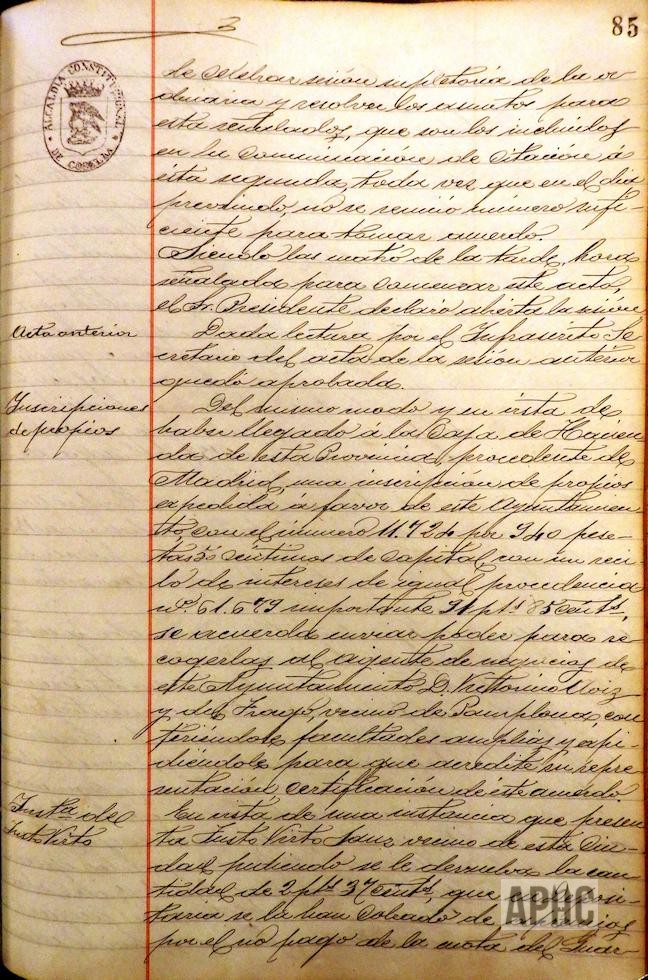 3
85
ALCALDIA CONSTITUCIONAL
DE CORELLA
de celebrar sesión supletoria de la or
dinaria y resolver los asuntos para
esta señalados, que son los incluidos
en la comunicación de citación á
ésta segunda, toda vez que en el día
prevenido, no se reunió número sufi-
ciente para tomar acuerdo.
Siendo las cuatro de la tarde, hora
señalada para comenzar este acto,
el Sr. Presidente declaró abierta la sesión
Acta anterior
Dada lectura por el Infrascrito Se
cretario del acta de la sesión anterior
quedó aprobada.
Inscripciones
de propios
Del mismo modo y en vista de
haber llegado á la Caja de Hacien
da de esta Provincia, procedente de
Madrid, una inscripción de propios
expedida á favor de este Ayuntamien
to con el número 11.724 por 940 pese-
tas céntimos de capital, con un reci
bo de intereses de igual procedencia
nº. 61.679 importante 91 pts 85 cents,
se acuerda enviar poder para re
cogerlas al agente de negocios de
este Ayuntamiento D. Victorino
y del Frago, vecino de Pamplona, con
firiéndole facultades amplias y expi-
diéndole para que acredite su repre
sentación certificación de éste acuerdo.
Instª del
Justo Virto
En vista de una instancia que presen
ta Justo Virto Sanz vecino de esta Ciu-
dad, pidiendo se le devuelva la can
tidad de 2 pts 37 cents, que en
se la han cobrado de apremios
por el no pago de la cuota del Guar-
APHC